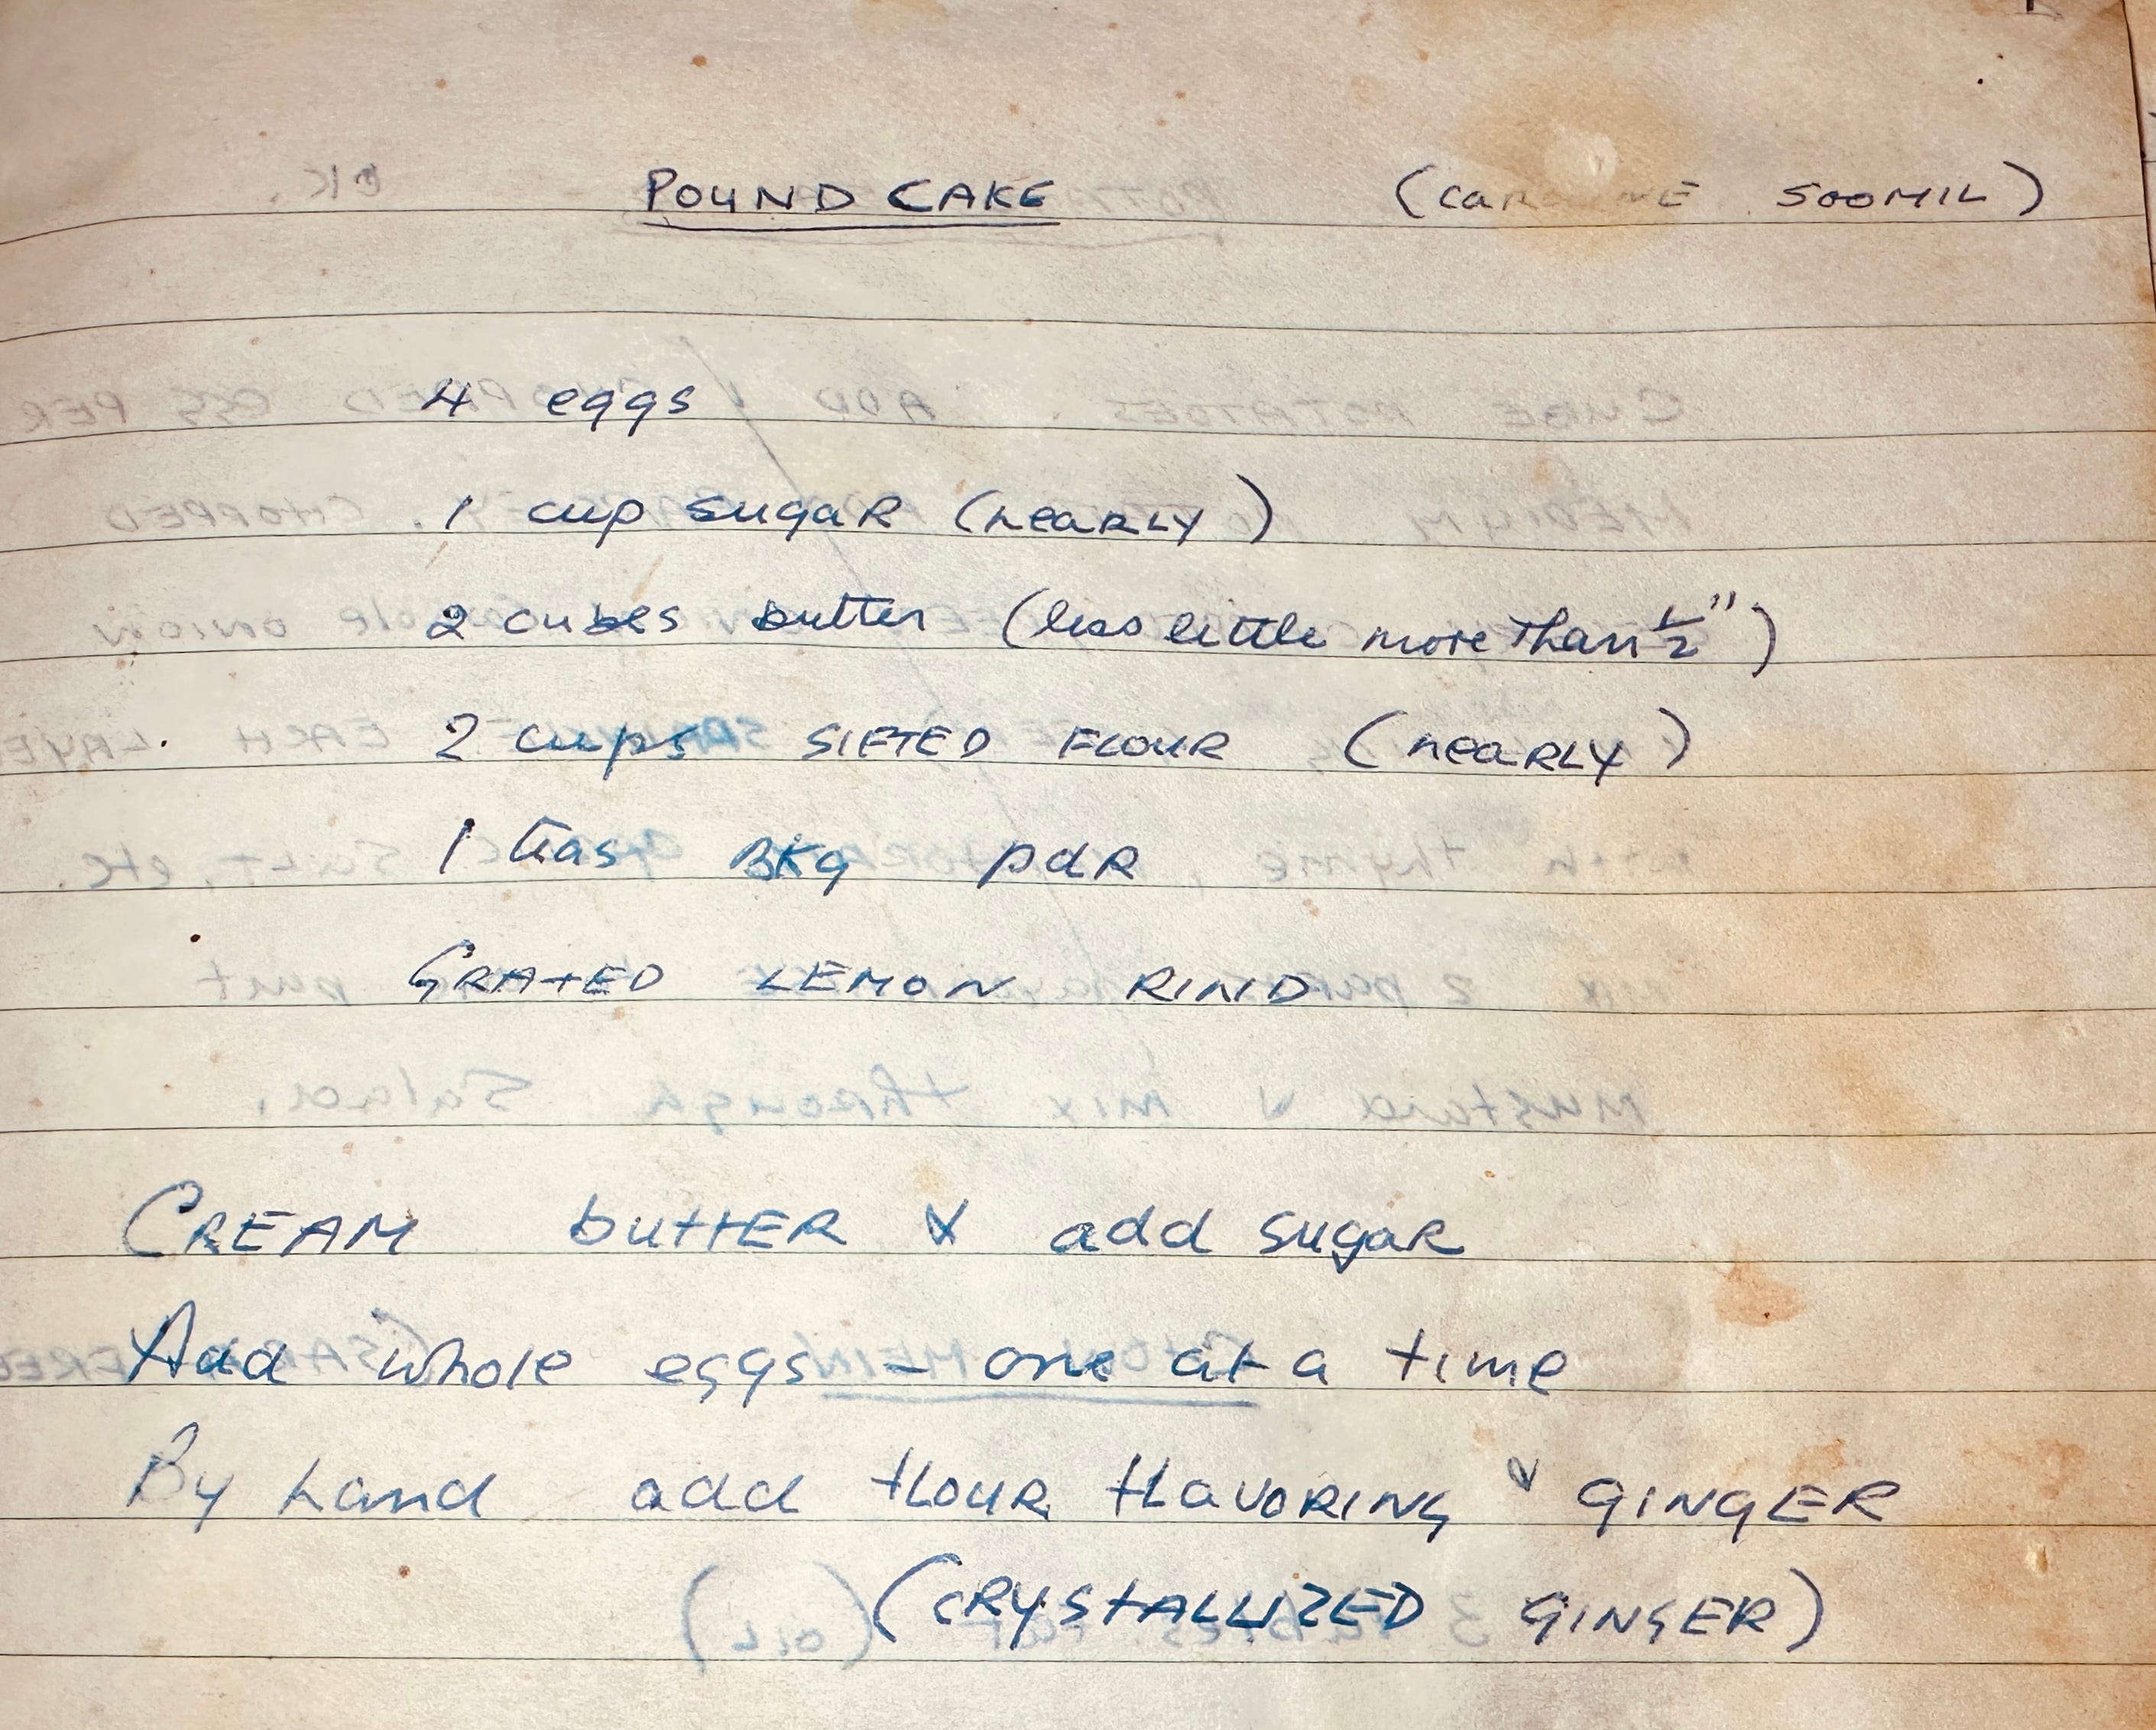 POUND CAKE (CAROLINE SOOMIL)
4 eggs
1 cup sugar (nearly)
2 cubes butter (less little more than 1/2")
2 cups SIFTED FLOUR (nearly)
1 teas BKg pdR
GRATED LEMON RIND
CREAM buttER & add sugar
Add whole eggs - one at a time
By hand add flour flavoring & GINGER
(CRYSTALLIZED GINGER)